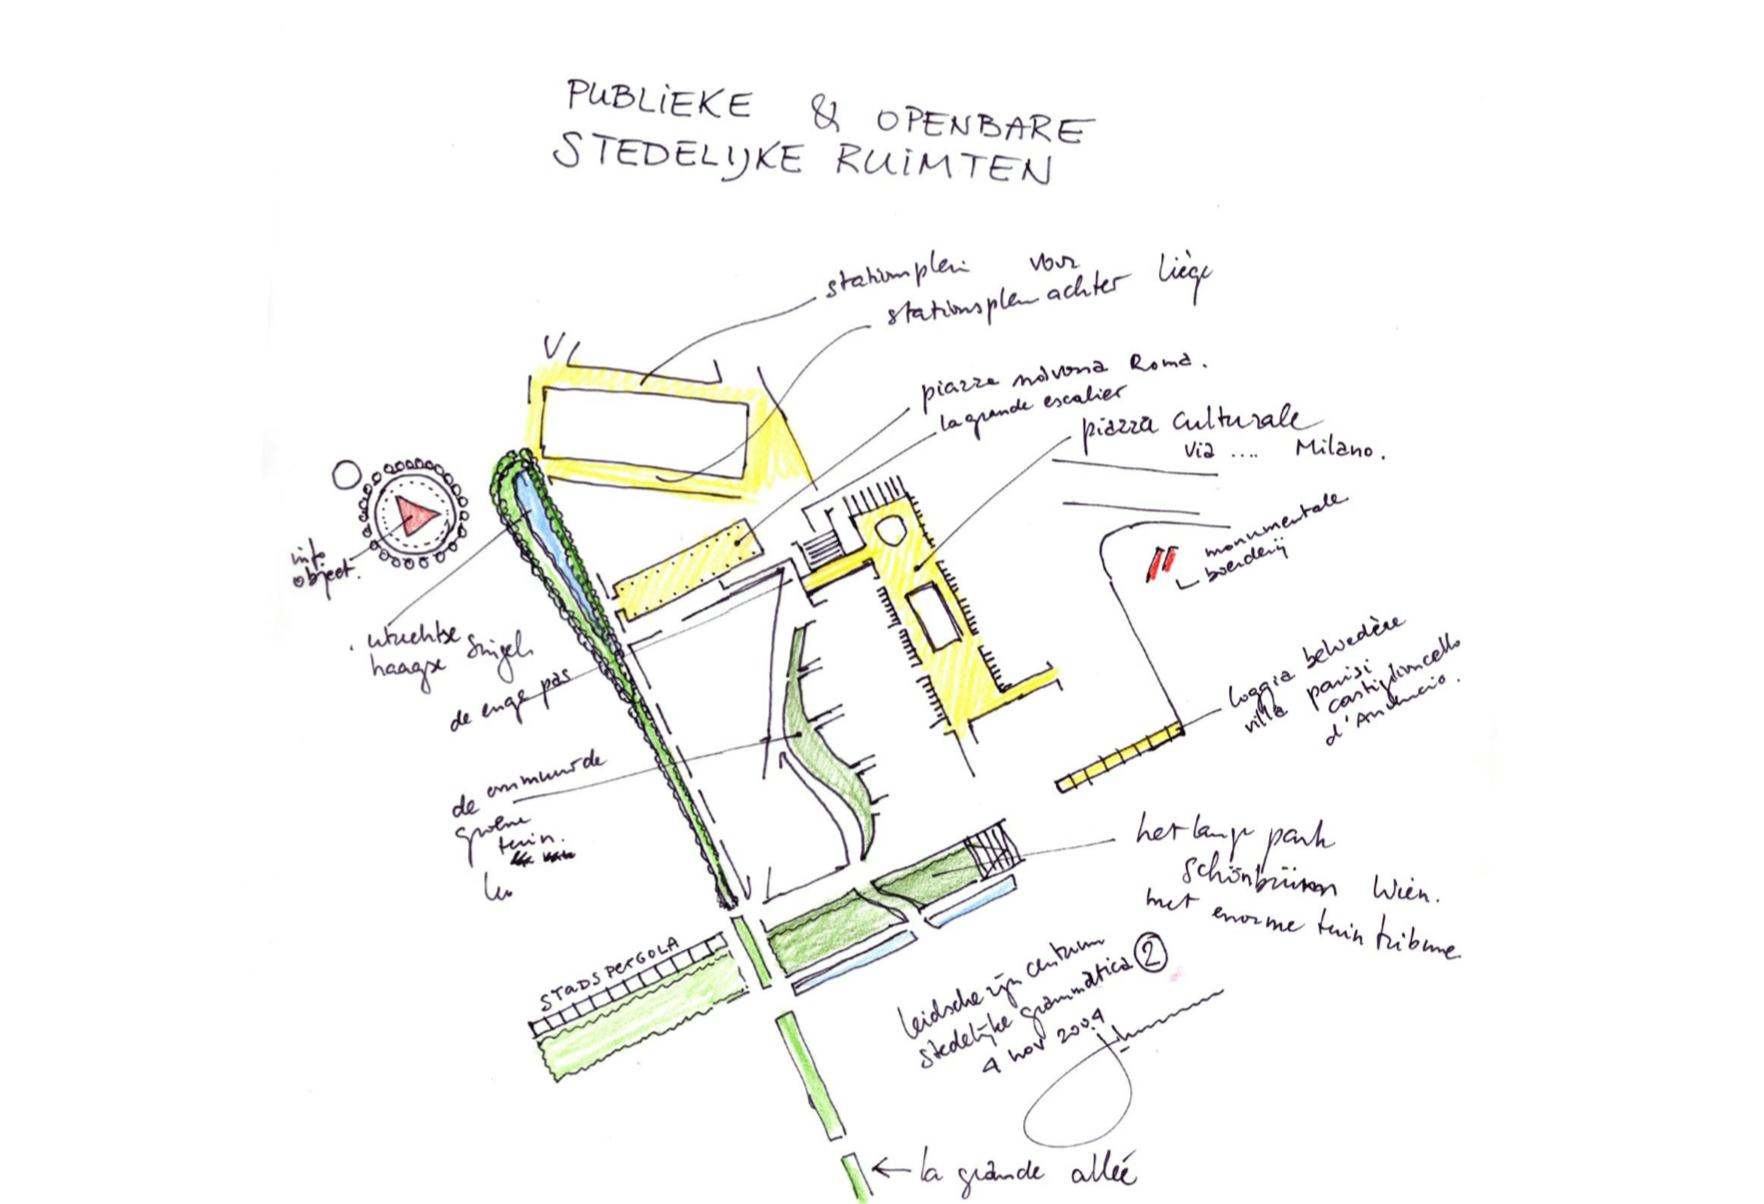 PUBLIEKE & OPENBARE
STEDELIJKE RUIMTEN
stationsplein voor
stationsplein achter Liège
piazza navona Roma.
la grande escalier
piazza Culturale
via .... Milano.
monumentale
boerderij
info
object.
utrechtse
haagse Singel
de enge pas
de ommuurde
groene
tuin.
loggia belvedère
villa parisi
castiglioncello
d'Annuncio.
het lange park
Schönbrünn Wien.
met enorme tuin tribune
STADSPERGOLA
leidsche rijn centrum
stedelijke grammatica 2
4 nov 2004
la grande alleé